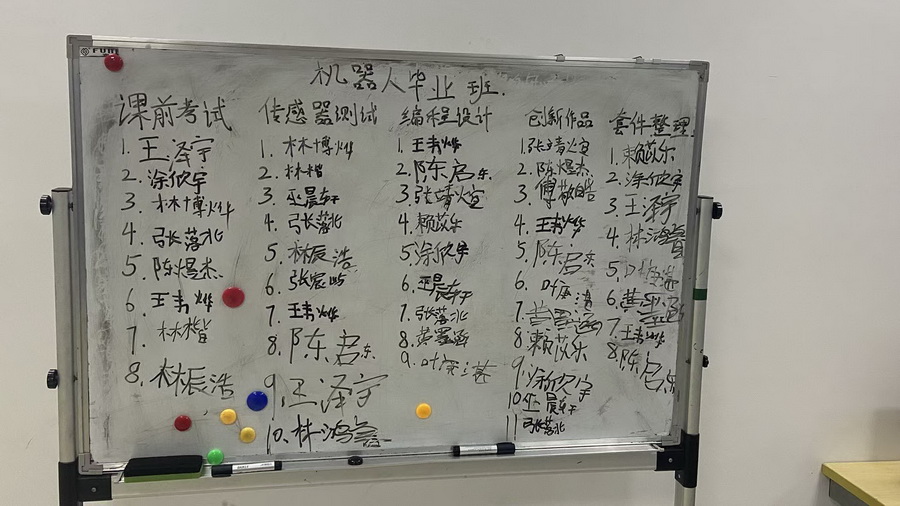 机器人毕业班.
课前考试
1. 王泽宇
2. 涂欣宇
3. 林博烨
4. 张落北
5. 陈煜杰.
6. 王书烨
7. 林楷
8. 林辰浩
传感器测试
1. 林博烨
2. 林楷
3. 巫晨轩
4. 张落北
5. 林辰浩
6. 张宸
7. 王书烨
8. 陈启东
9. 王泽宇
10. 林鸿
编程设计
1. 王书烨
2. 陈启东
3. 张靖宜
4. 赖苡乐
5. 涂欣宇
6. 巫晨轩
7. 张落北
8. 黄墨涵
9. 叶
创新作品
1. 张靖宜
2. 陈煜杰.
3. 傅
4. 王书烨
5. 陈启东
6. 叶
7. 黄墨涵
8. 赖苡乐
9. 涂欣宇
10. 巫晨轩
11. 张落北
套件整理
1. 赖苡乐
2. 涂欣宇
3. 王泽宇
4. 林鸿
5. 叶
6. 黄墨涵
7. 王书烨
8. 陈启东